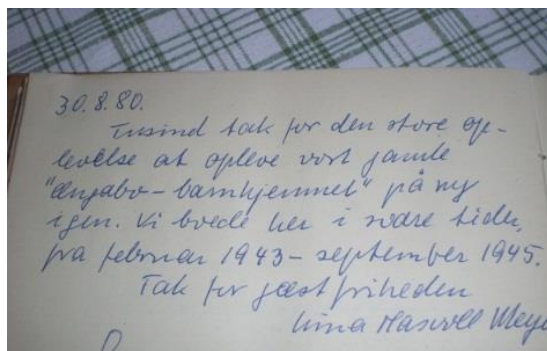 30.8.80.
Tusind tak for den store op-
levelse at opleve vort gamle
"Engabo-barnhjemmet" på ny
igen. Vi boede her i svære tider,
fra februar 1943 - september 1945.
Tak for gæstfriheden
Maxwell Meye